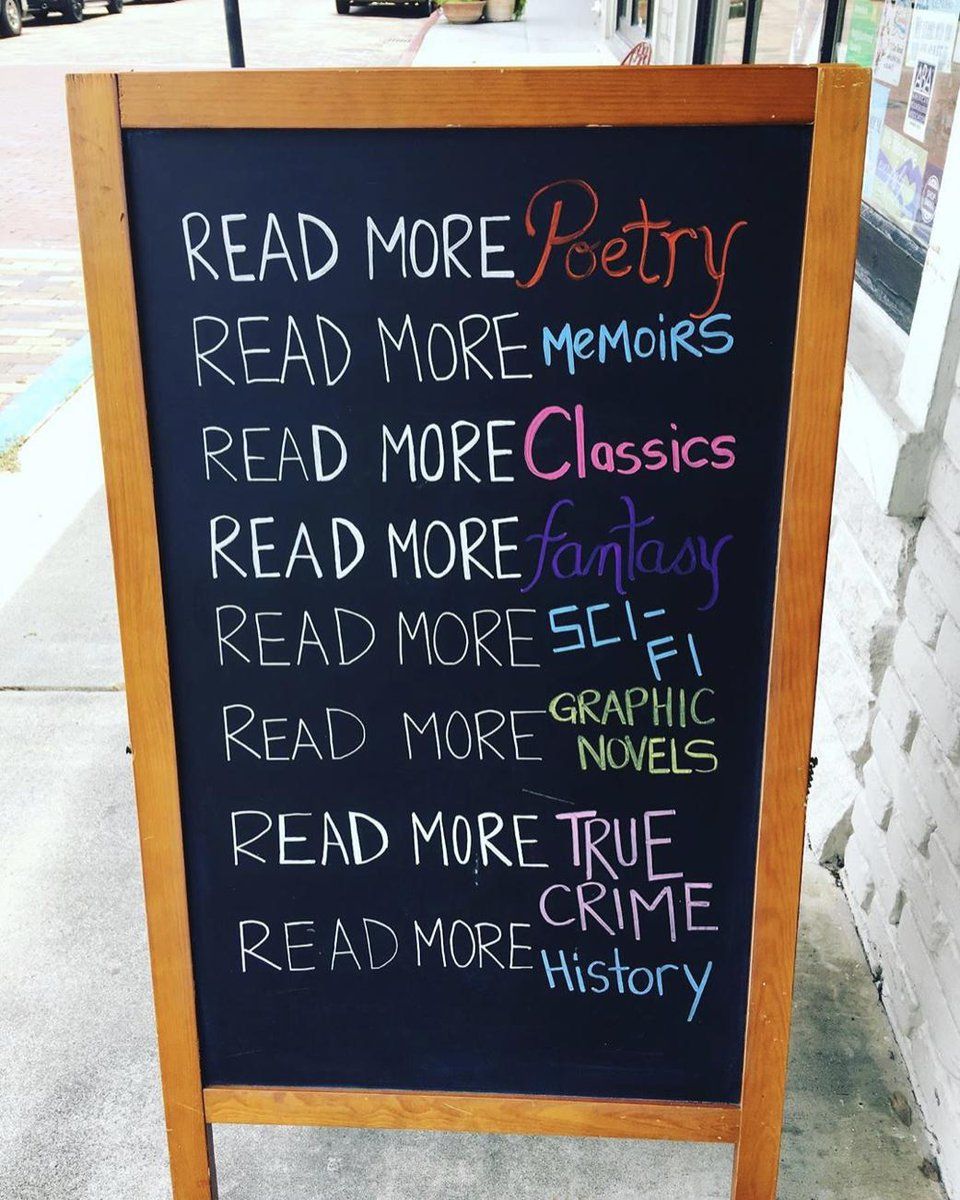 READ MORE Poetry
READ MORE MeMoiRS
READ MORE Classics
READ MORE fantasy
READ MORE SCI-
FI
READ MORE GRAPHIC
NOVELS
READ MORE TRUE
CRIME
READ MORE History